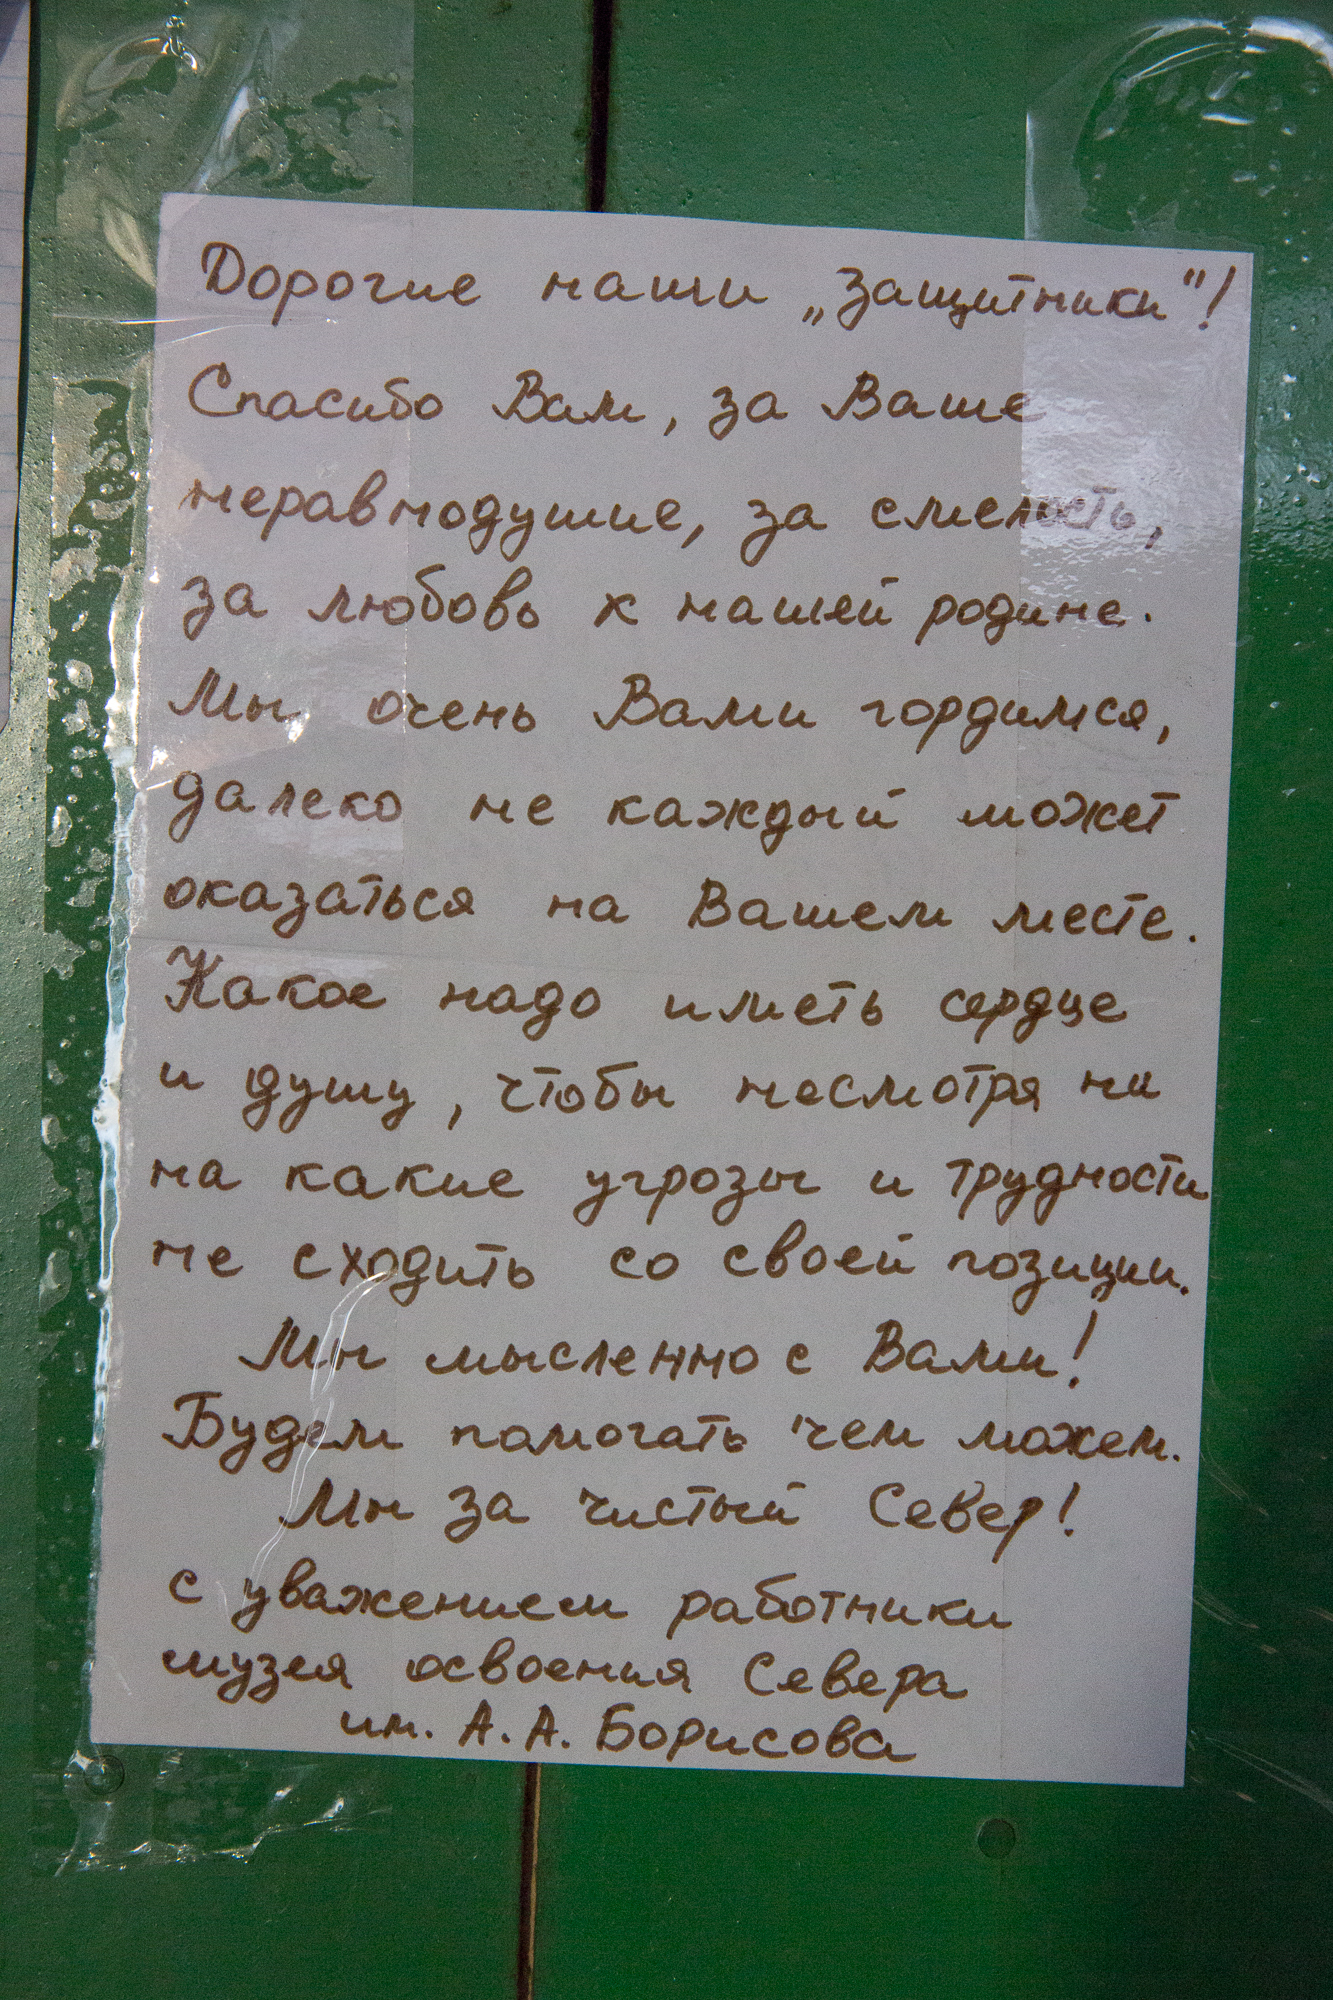 Дорогие наши „защитники"!
Спасибо Вам, за Ваше
неравнодушие, за смелость,
за любовь к нашей родине.
Мы очень Вами гордимся,
далеко не каждый может
оказаться на Вашем месте.
Какое надо иметь сердце
и душу, чтобы несмотря ни
на какие угрозы и трудности
не сходить со своей позиции.
Мы мысленно с Вами!
Будем помогать чем можем.
Мы за чистый Север!
с уважением работники
музея освоения Севера
им. А.А. Борисова